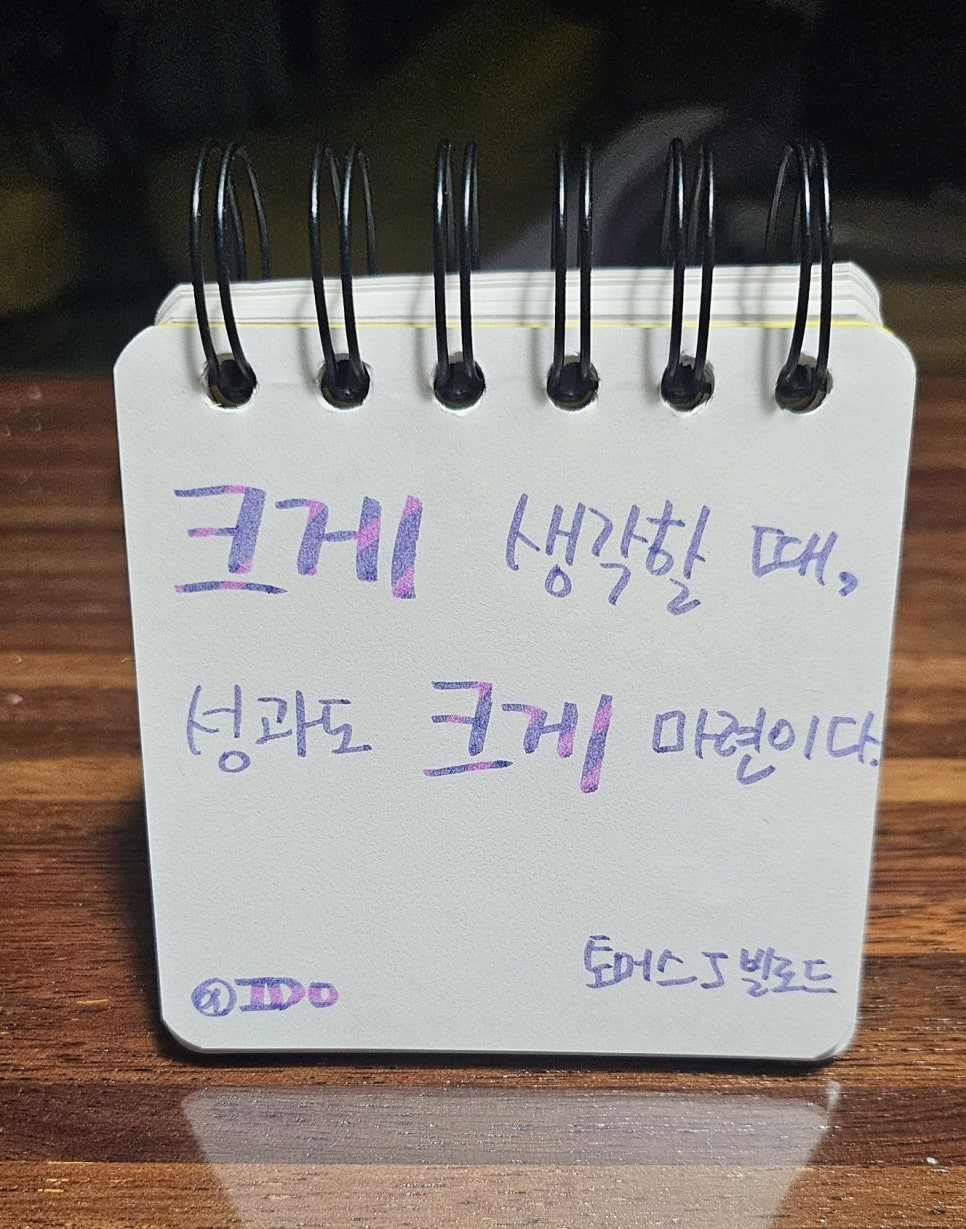 크게 생각할 때,
성과도 크게 마련이다.
토머스 J 빌로드
@IDO